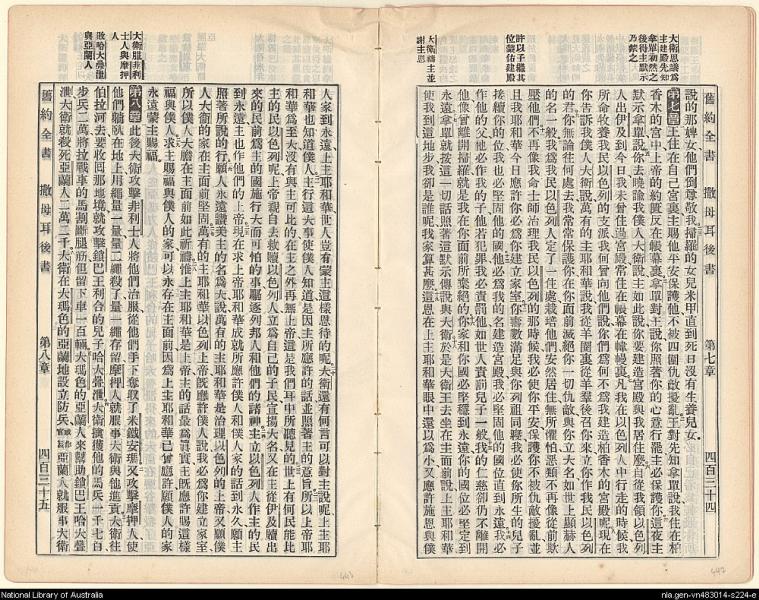 舊約全書 撒母耳後書 第七章 四百三十四
主建殿先知
後得主默示
許以子繼其
位蒙佑建殿
大衛禱主並
謝主恩
說的婢女他們倒尊敬我掃羅的女兒米甲直到死日沒有生養兒女
第七章 王住在自己宮裏主賜他平安保護他不被四圍仇敵擾亂王對先知拿單說我住在柏
香木的宮中上帝的約匱反在帳幕裏拿單對王說你照著你的心意行罷主必保護你這夜主
默示拿單說你去曉諭我僕人大衛說主如此說你要建造宮殿與我居住麼自從我領以色列
人出伊及到今日我未曾住過宮殿常住在帳幕在幃幔裏凡我在以色列人中行走的時候我
所命牧養我民以色列的支派我何曾向他們說你們為何不為我建造柏香木的宮殿呢現在
你告訴我僕人大衛說萬有的主耶和華說我從羊圈裏從羊羣後召你來立你作我民以色列
的君你無論往何處去我常常保護你在你面前滅絕你一切仇敵與你立大名如世上顯赫人
的名一般我為我民以色列人定了一住處栽培他們安然居住無所懼怕惡類不再像從前欺
壓他們不再像我命士師治理我民以色列的那時候我必使你平安保護你不被仇敵擾亂並
且我耶和華今日應許你必為你建立家室你壽數滿足與你列祖同睡我必使你所生的兒子
接續你的位我也必堅固他的國他必為我的名建造殿我必堅固他的國位直到永遠我必
作他的父他必作我的子他若犯罪我必責罰他如世人責罰兒子一般我的仁慈卻仍不離開
他像曾離開掃羅就是我在你面前所棄絕的你家和你國必堅穩到永遠你的國位必堅定到
永遠拿單就按這一切話照著這默示傳說與大衛於是大衛王去坐在主面前說上主耶和華
使我到這地步我卻是誰呢我家算甚麼這恩在上主耶和華眼中還以為小又應許施恩與僕
人家到永遠上主耶和華世人豈有蒙主這樣恩待的呢大衛還有何言可以對主說呢上主耶
和華也知道僕人主行這大事使僕人知道是因主所應許的話並照著主的意旨所以上帝耶
和華為至大沒有與主可比的在主之外再無上帝這是我們耳中所聽見的世上有何民能比
主的民以色列呢上帝親自去救贖以色列人立為自己的子民宣揚大名又在主從伊及贖出
來的民前為主的國施行大而可怕的事驅逐列邦人和他們的諸神主立以色列人作主的民
到永遠主也作他們的上帝現在求上帝耶和華成就所應許僕人和僕人家的話到永久願主
照著所說的行願人永遠讚美主的名為大說萬有的主耶和華是治理以色列的上帝又願僕
人大衛的家在主面前堅固萬有的主耶和華以色列上帝既應許僕人說我必為你建立家室
所以僕人大膽在主面前如此祈禱惟上主耶和華是上帝主的話最為眞實主既應許賜這樣
福與僕人求主賜福與僕人的家可以永存在主面前因為上主耶和華已曾應許願僕人的家
永遠蒙主賜福
大衛服非利
士人與摩押
與亞蘭人
第八章 此後大衛攻擊非利士人將他們治服從他們手下奪取了米鐵安瑪又攻擊摩押人使
他們躺臥在地上用繩量一量量二繩殺了量一繩存留摩押人就服事大衛與他進貢大衛往
伯拉河去要收回那地境就攻擊鎖巴王利合的兒子哈大疊澤大衛擒獲他的馬兵一千七百
步兵二萬將拉戰車的馬割斷腿筋但留下車一百輛大瑪色的亞蘭人來幫助鎖巴王哈大疊
澤大衛就殺死亞蘭人二萬二千大衛在大瑪色的亞蘭地設立防兵亞蘭人就服事大衛
舊約全書 撒母耳後書 第八章 四百三十五
National Library of Australia
nla.gen-vn483014-s224-e